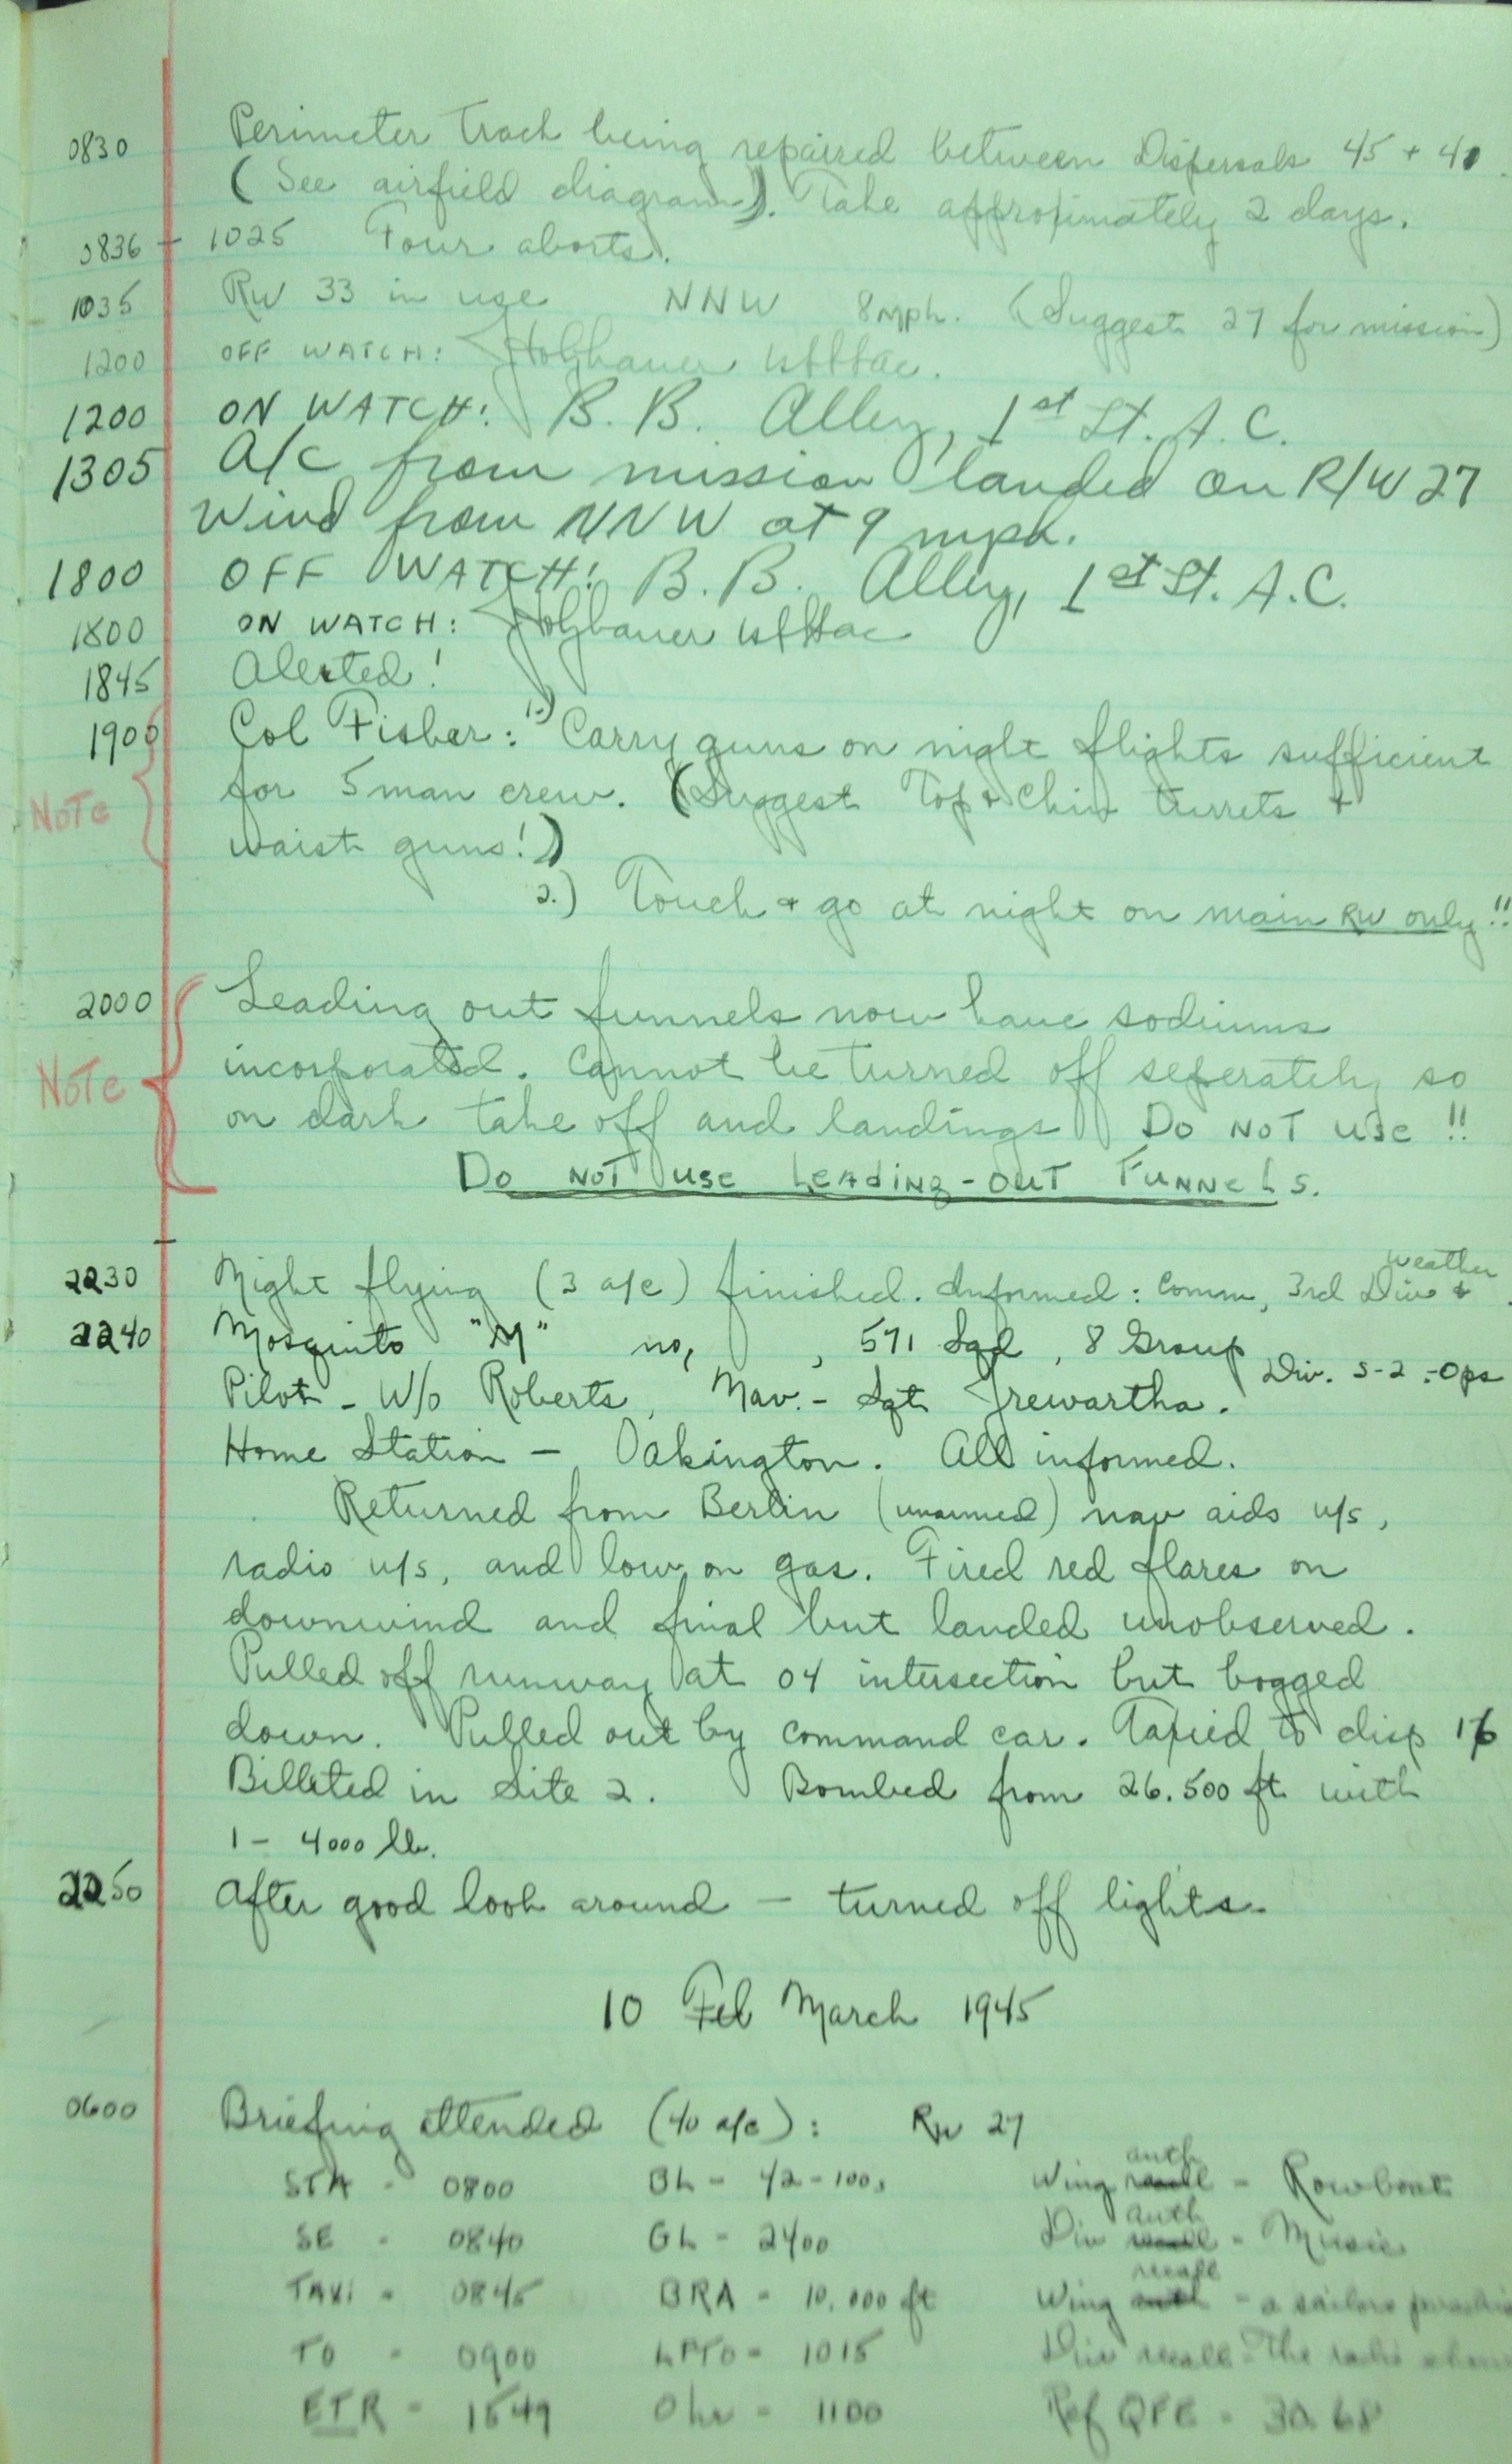 0830 Perimeter track being repaired between Dispersals 45 + 40.
(See airfield diagram). Take approximately 2 days.
0836 - 1025 Four aborts.
1035 Rw 33 in use NNW 8mph. (Suggest 27 for mission)
1200 OFF WATCH: Holzbauer 1stltac.
1200 ON WATCH: B. B. Alley, 1st Lt. A.C.
1305 A/c from mission landed on R/W 27
Wind from NNW at 9 mph.
1800 OFF WATCH: B. B. Alley, 1st Lt. A.C.
1800 ON WATCH: Holzbauer 1stltac
1845 Alerted!
1900 Col Fisher: 1.) Carry guns on night flights sufficient
NOTE for 5 man crew. (Suggest Top & Chin turrets +
waist guns!)
2.) Touch & go at night on main RW only!!
2000 Leading out funnels now have sodiums
NOTE incorporated. Cannot be turned off seperately so
on dark take off and landings DO NOT USE!!
DO NOT USE LEADING-OUT FUNNELS.
weather
2230 Night flying (3 a/c) finished. Informed: Comm, 3rd Div &
2240 Mosquito "M" no, , 571 Sqd, 8 Group
Div. S-2 - Ops
Pilot - W/o Roberts, Nav. - Sgt Trewartha.
Home Station - Oakington. All informed.
Returned from Berlin (unarmed) nav aids u/s,
radio u/s, and low on gas. Fired red flares on
downwind and final but landed unobserved.
Pulled off runway at 04 intersection but bogged
down. Pulled out by command car. Taxied to disp 16
Billeted in Site 2. Bombed from 26.500 ft with
1 - 4000 lb.
2250 After good look around - turned off lights.
10 Feb March 1945
0600 Briefing attended (40 a/c): Rw 27
auth
STA - 0800 BL - 42-100s Wing recall - Rowboat
auth
SE - 0840 GL - 2400 Div recall - Music
recall
TAXI - 0845 BRA - 10,000 ft Wing auth - a sailors
TO - 0900 LPTO - 1015 Div recall - The radio
ETR - 1549 0 hr - 1100 Ref QFE - 30.68